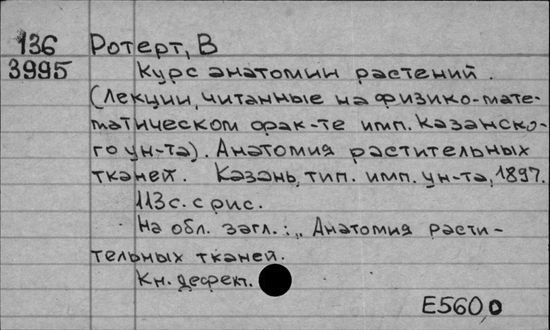 136 Ротерт, В
3995 Курс анатомии растений.
(Лекции, читанные на физико-мате-
матическом фак-те имп. Казанско-
го ун-та). Анатомия растительных
тканей. Казань, тип. имп. ун-та, 1897.
113 с. с рис.
На обл. загл.: „Анатомия расти-
тельных тканей.
Кн. дефект.
E560